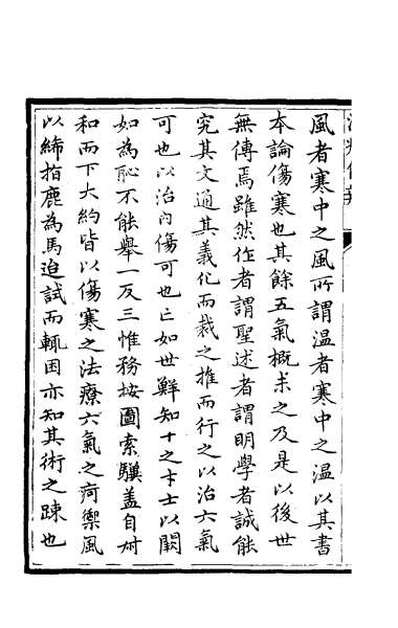 風者寒中之風所謂温者寒中之温以其書
本論傷寒也其餘五氣概未之及是以後世
無傳焉雖然作者謂聖述者謂明學者誠能
究其文通其義化而裁之推而行之以治六氣
可也以治内傷可也亡如世鮮知十之才士以闕
如為恥不能舉一反三惟務按圖索驥蓋自叔
和而下大約皆以傷寒之法療六氣之疴禦風
以絺指鹿為馬迨試而輒困亦知其術之踈也